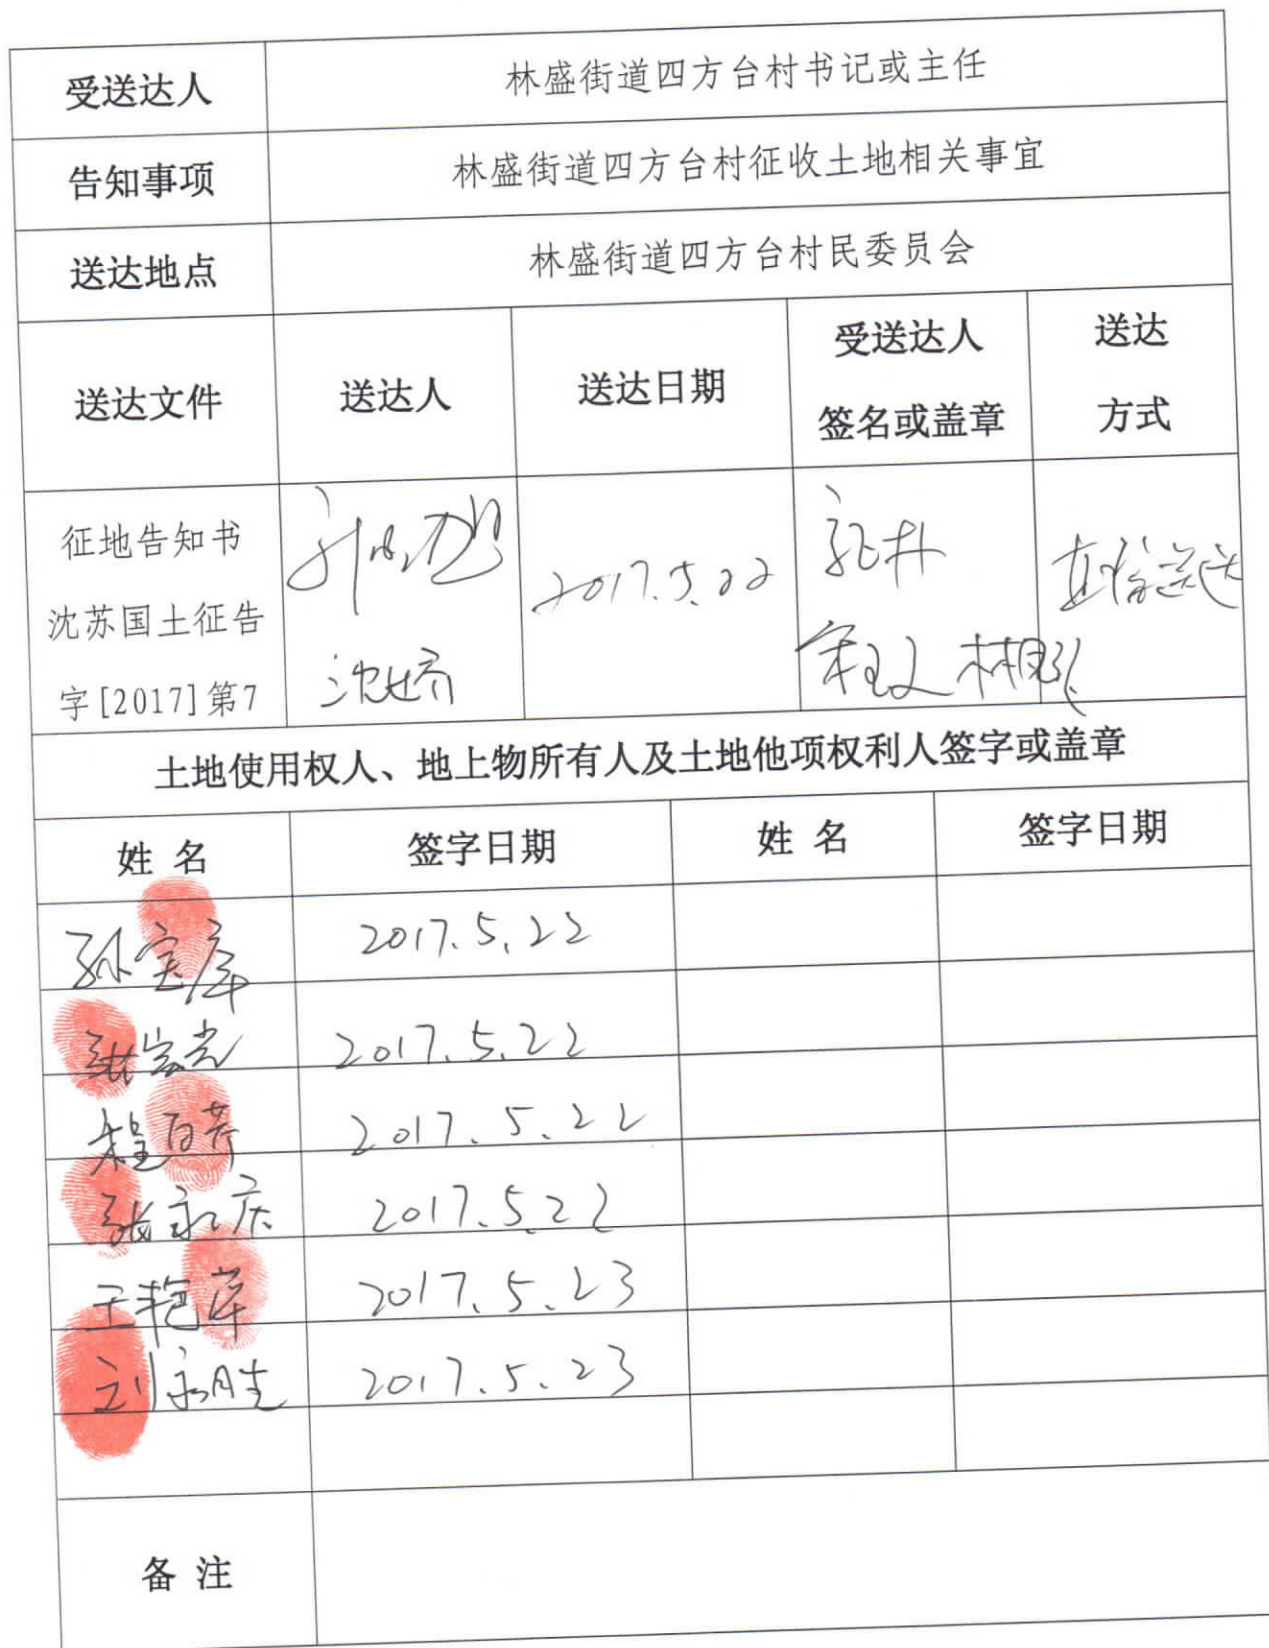 受送达人
林盛街道四方台村书记或主任
告知事项
林盛街道四方台村征收土地相关事宜
送达地点
林盛街道四方台村民委员会
送达文件
送达人
送达日期
受送达人
签名或盖章
送达
方式
征地告知书
沈苏国土征告
字[2017]第7
沈娇
2017.5.22
送达
土地使用权人、地上物所有人及土地他项权利人签字或盖章
姓 名
签字日期
姓 名
签字日期
孙宝库
2017.5.22
张宝光
2017.5.22
2017.5.22
张永庆
2017.5.22
王艳萍
2017.5.23
刘永胜
2017.5.23
备 注